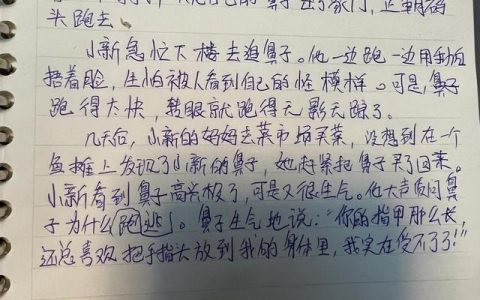 自己的鼻子出了家门,正朝码
头跑去。
小新急忙下楼去追鼻子。他一边跑一边用手帕
捂着脸,生怕被人看到自己的怪模样。可是,鼻子
跑得太快,转眼就跑得无影无踪了。
几天后,小新的妈妈去菜市场买菜,没想到在一个
鱼摊上发现了小新的鼻子,她赶紧把鼻子买了回来。
小新看到鼻子高兴极了,可是又很生气。他大声质问鼻
子为什么「跑逃」。鼻子生气地说:“你的指甲那么长,
还总喜欢把手指头放到我的身体里,我实在受不了了!”